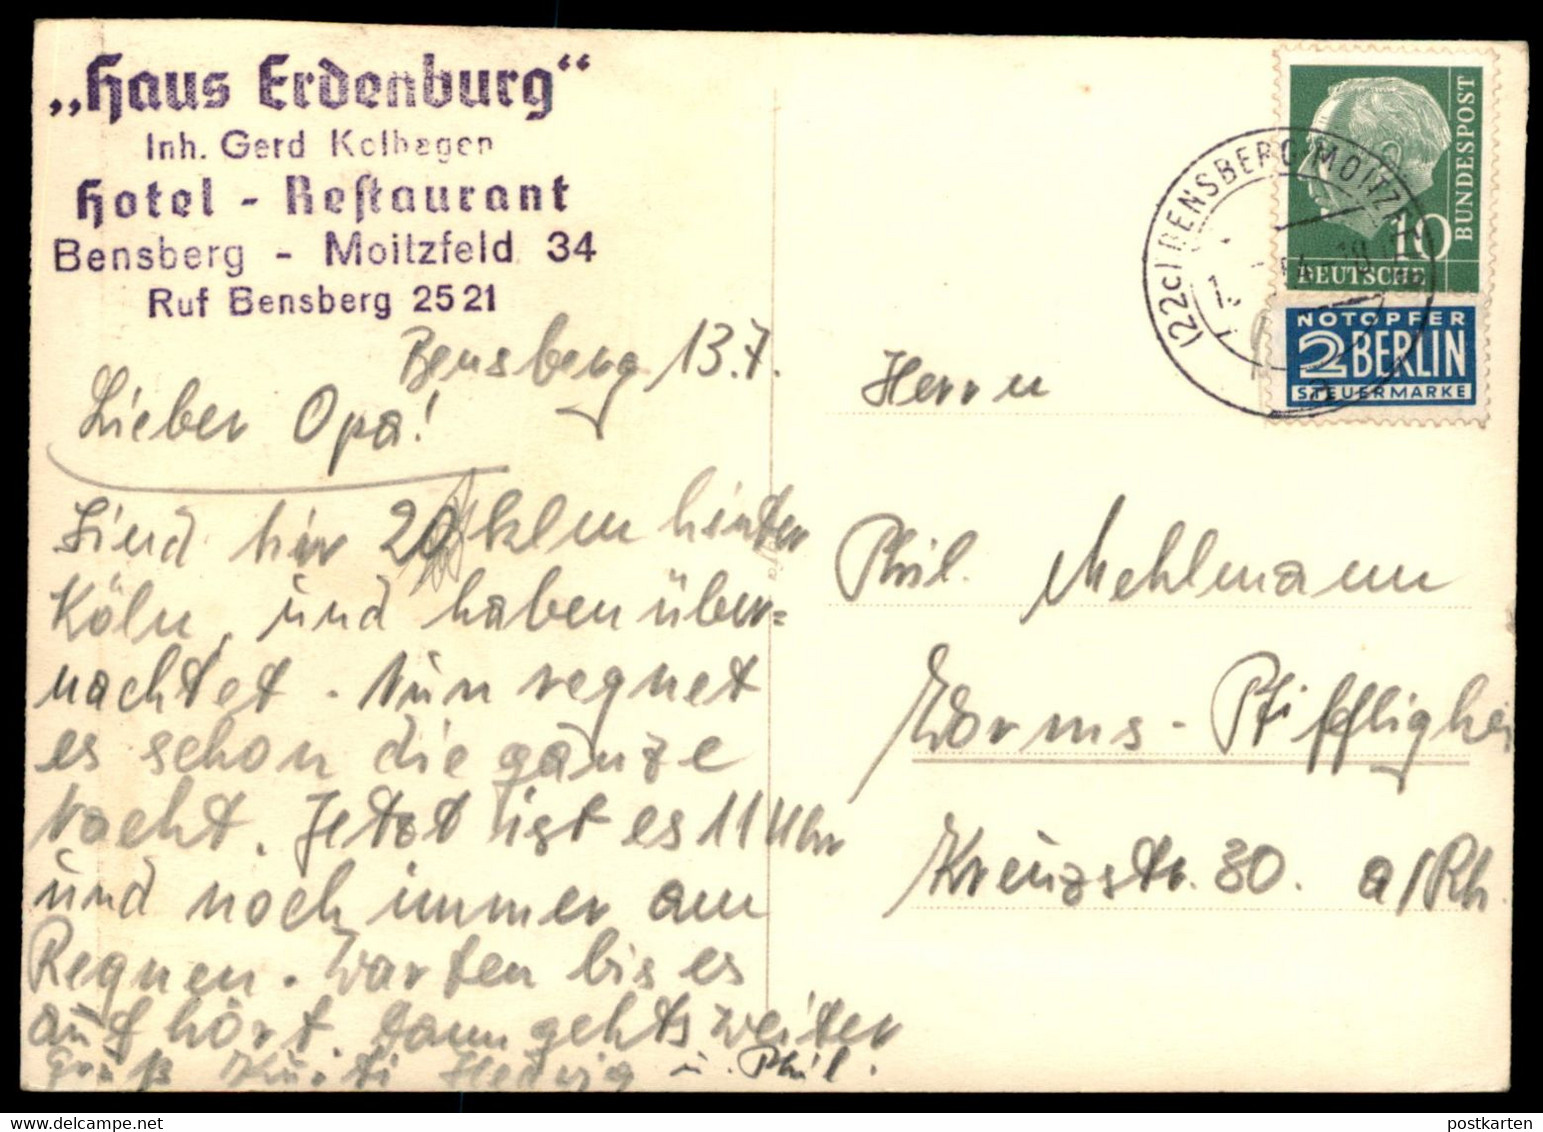 „Haus Erdenburg“
Inh. Gerd Kolhagen
Hotel - Restaurant
Bensberg - Moitzfeld 34
Ruf Bensberg 2521
Bensberg 13.7.
Lieber Opa!
Sind hir 20 klm hinter
Köln, und haben über=
nachtet. Nun regnet
es schon die ganze
Nacht. Jetzt ist es 11 Uhr
und noch immer am
Regnen. Warten bis es
auf hört. dann gehts weiter
Gruß Kurti Hedwig u. Phil.
BUNDESPOST
10
DEUTSCHE
NOTOPFER
2 BERLIN
STEUERMARKE
(22c) BENSBERG-MOITZF
a
Herrn
Phil. Mehlmann
Worms - Pfifflighei
Kreuzstr. 30. a/Rh.
postkarten